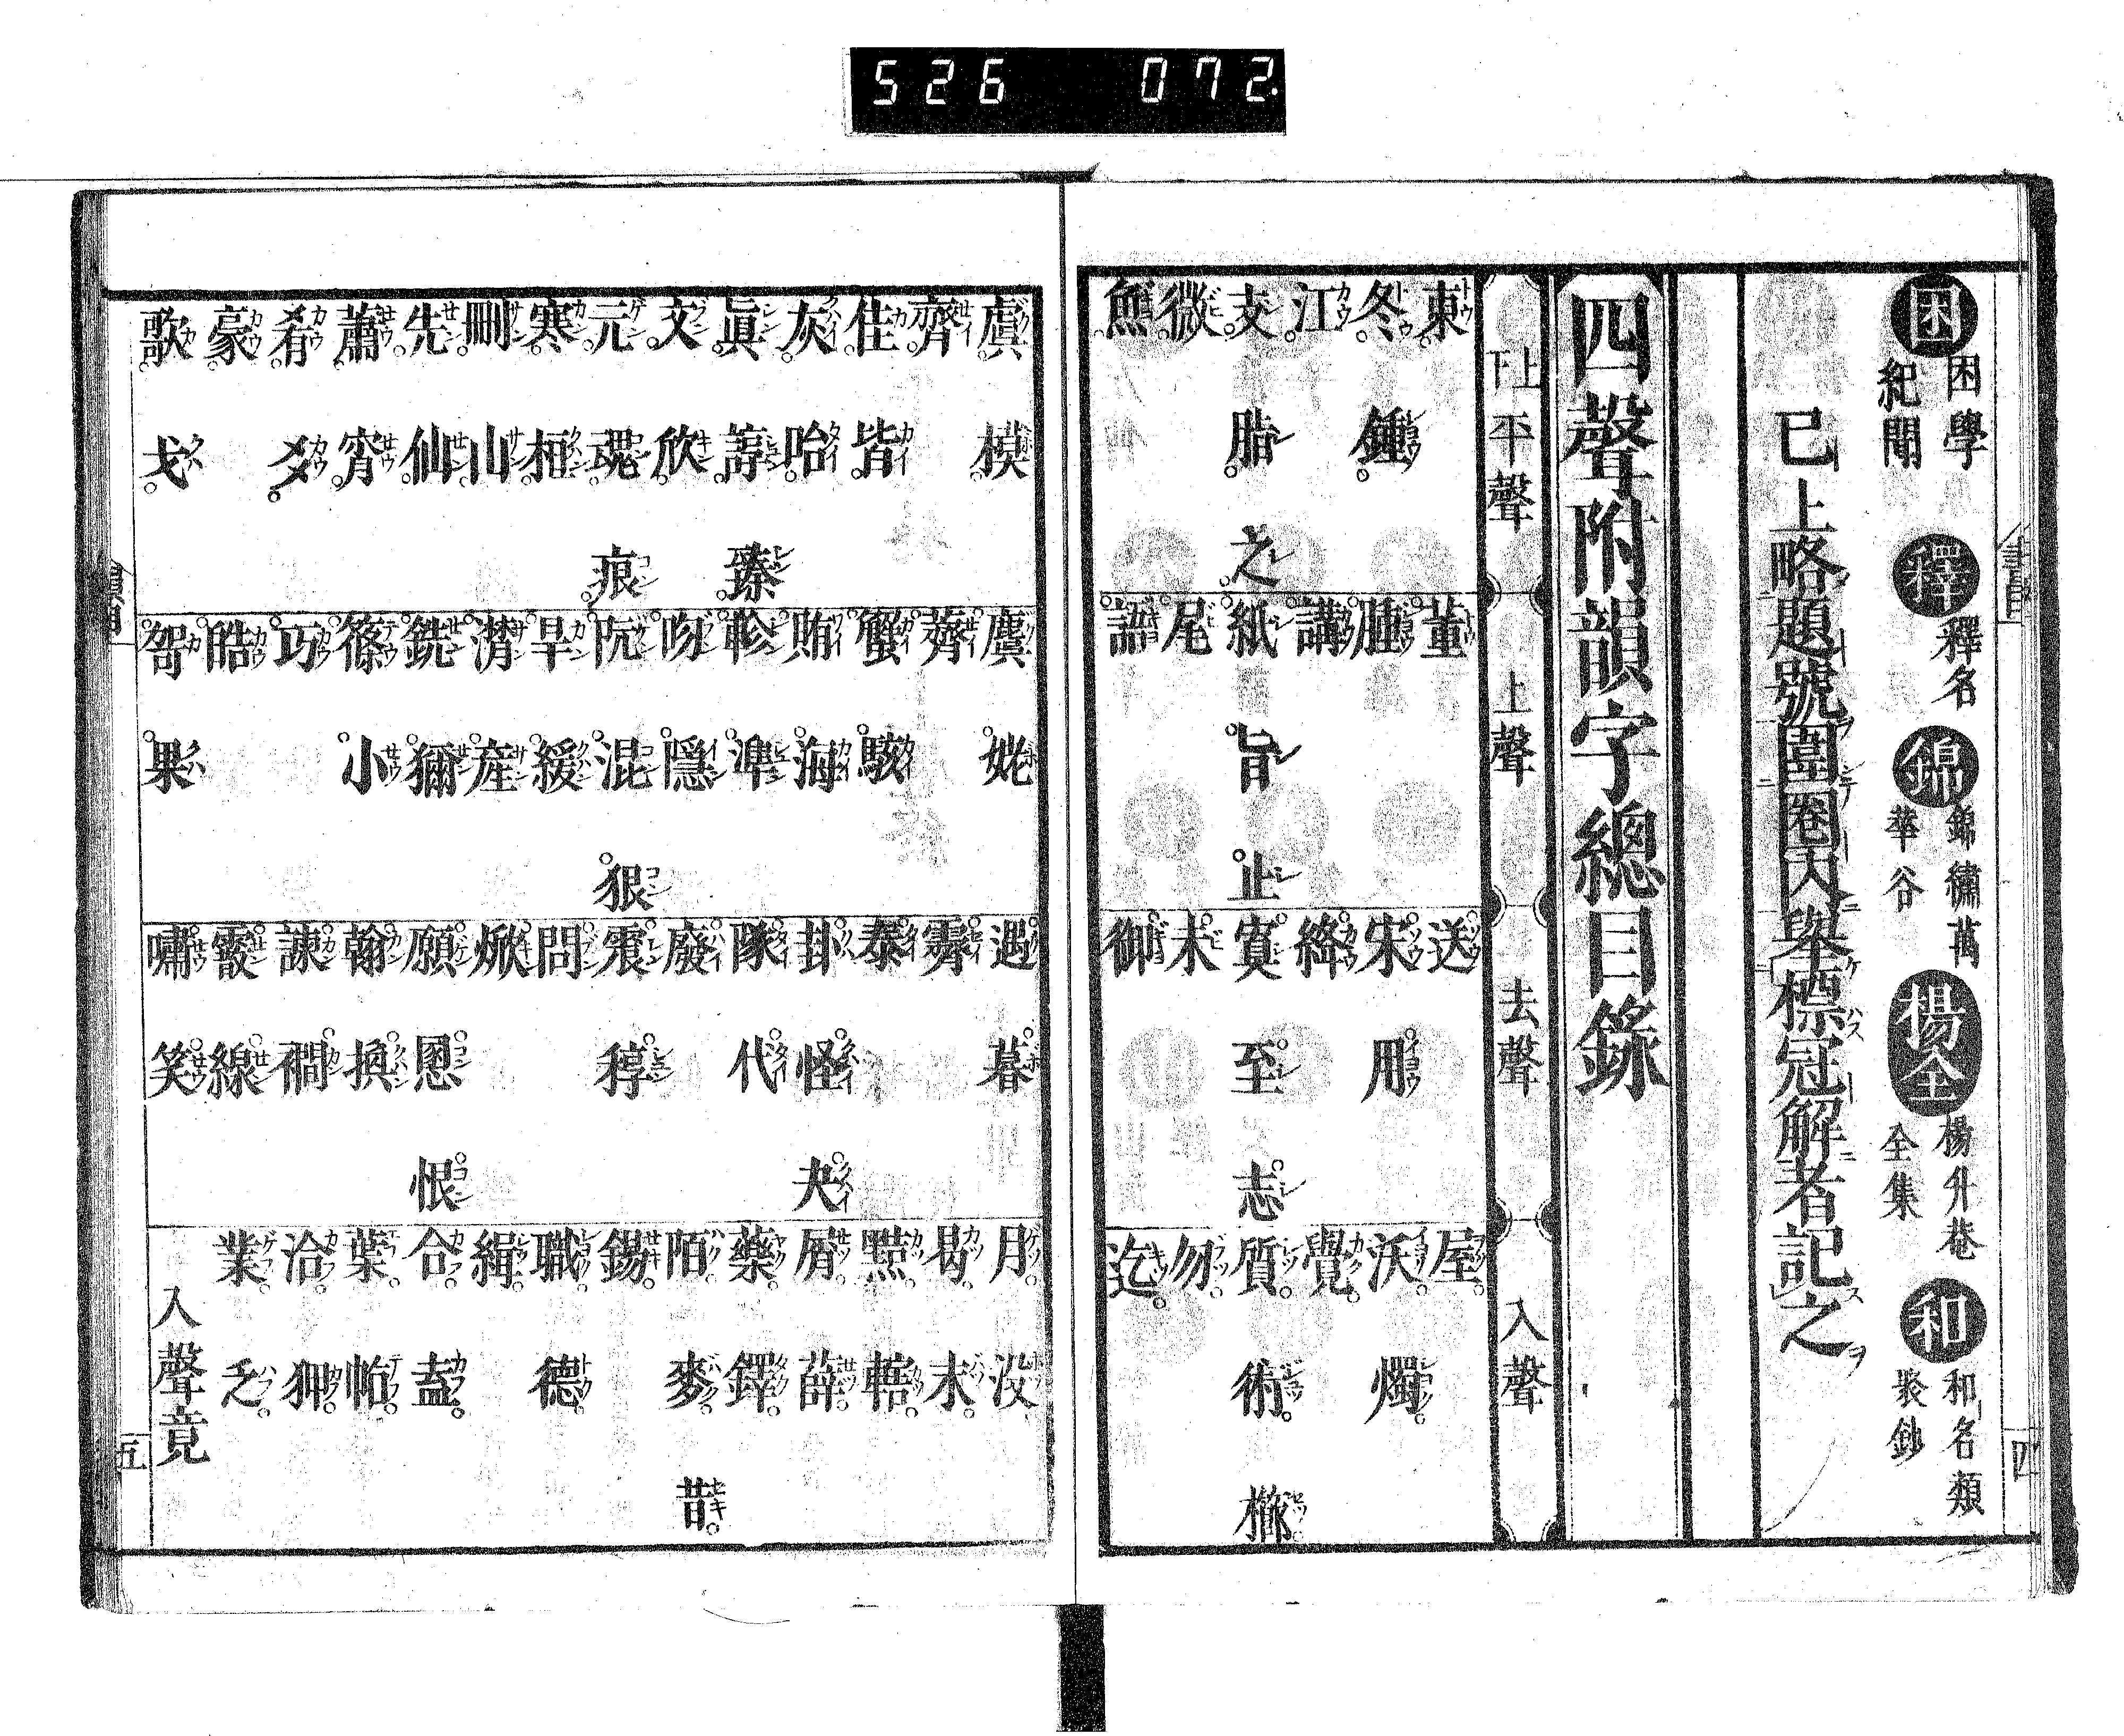 526 072.
困 困學紀聞 釋 釋名 錦 錦繡萬華谷 楊全 楊升菴全集 和 和名類聚鈔
已上略題號圍卷入擧標冠解者記之
四聲附韻字總目錄
上下平聲 上聲 去聲 入聲
東 董 送 屋
冬 鍾 腫 宋 用 沃 燭
江 講 絳 覺
支 脂 之 紙 旨 止 寘 至 志 質 術 櫛
微 尾 未 勿
魚 語 御 迄
虞 模 麌 姥 遇 暮 月 沒
齊 薺 霽 曷 末
佳 皆 蟹 駭 泰 黠 轄
灰 咍 賄 海 卦 怪 夬 屑 薛
眞 諄 臻 軫 準 隊 代 藥 鐸
文 欣 吻 隱 廢 陌 麥 昔
元 魂 痕 阮 混 狠 震 稕 錫
寒 桓 旱 緩 問 職 德
刪 山 潸 産 焮 緝
先 仙 銑 獮 願 慁 恨 合 盍
蕭 宵 篠 小 翰 換 葉 帖
肴 爻 巧 諫 襉 洽 狎
豪 皓 霰 線 業 乏
歌 戈 哿 果 嘯 笑 入聲竟
四
五